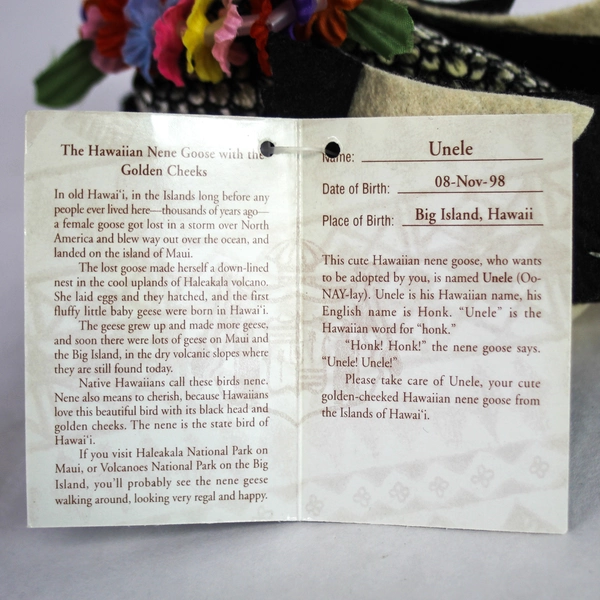 The Hawaiian Nene Goose with the
Golden Cheeks
In old Hawai‘i, in the Islands long before any
people ever lived here—thousands of years ago—
a female goose got lost in a storm over North
America and blew way out over the ocean, and
landed on the island of Maui.
The lost goose made herself a down-lined
nest in the cool uplands of Haleakala volcano.
She laid eggs and they hatched, and the first
fluffy little baby geese were born in Hawai‘i.
The geese grew up and made more geese,
and soon there were lots of geese on Maui and
the Big Island, in the dry volcanic slopes where
they are still found today.
Native Hawaiians call these birds nene.
Nene also means to cherish, because Hawaiians
love this beautiful bird with its black head and
golden cheeks. The nene is the state bird of
Hawai‘i.
If you visit Haleakala National Park on
Maui, or Volcanoes National Park on the Big
Island, you’ll probably see the nene geese
walking around, looking very regal and happy.
Name: Unele
Date of Birth: 08-Nov-98
Place of Birth: Big Island, Hawaii
This cute Hawaiian nene goose, who wants
to be adopted by you, is named Unele (Oo-
NAY-lay). Unele is his Hawaiian name, his
English name is Honk. “Unele” is the
Hawaiian word for “honk.”
“Honk! Honk!” the nene goose says.
“Unele! Unele!”
Please take care of Unele, your cute
golden-cheeked Hawaiian nene goose from
the Islands of Hawai‘i.